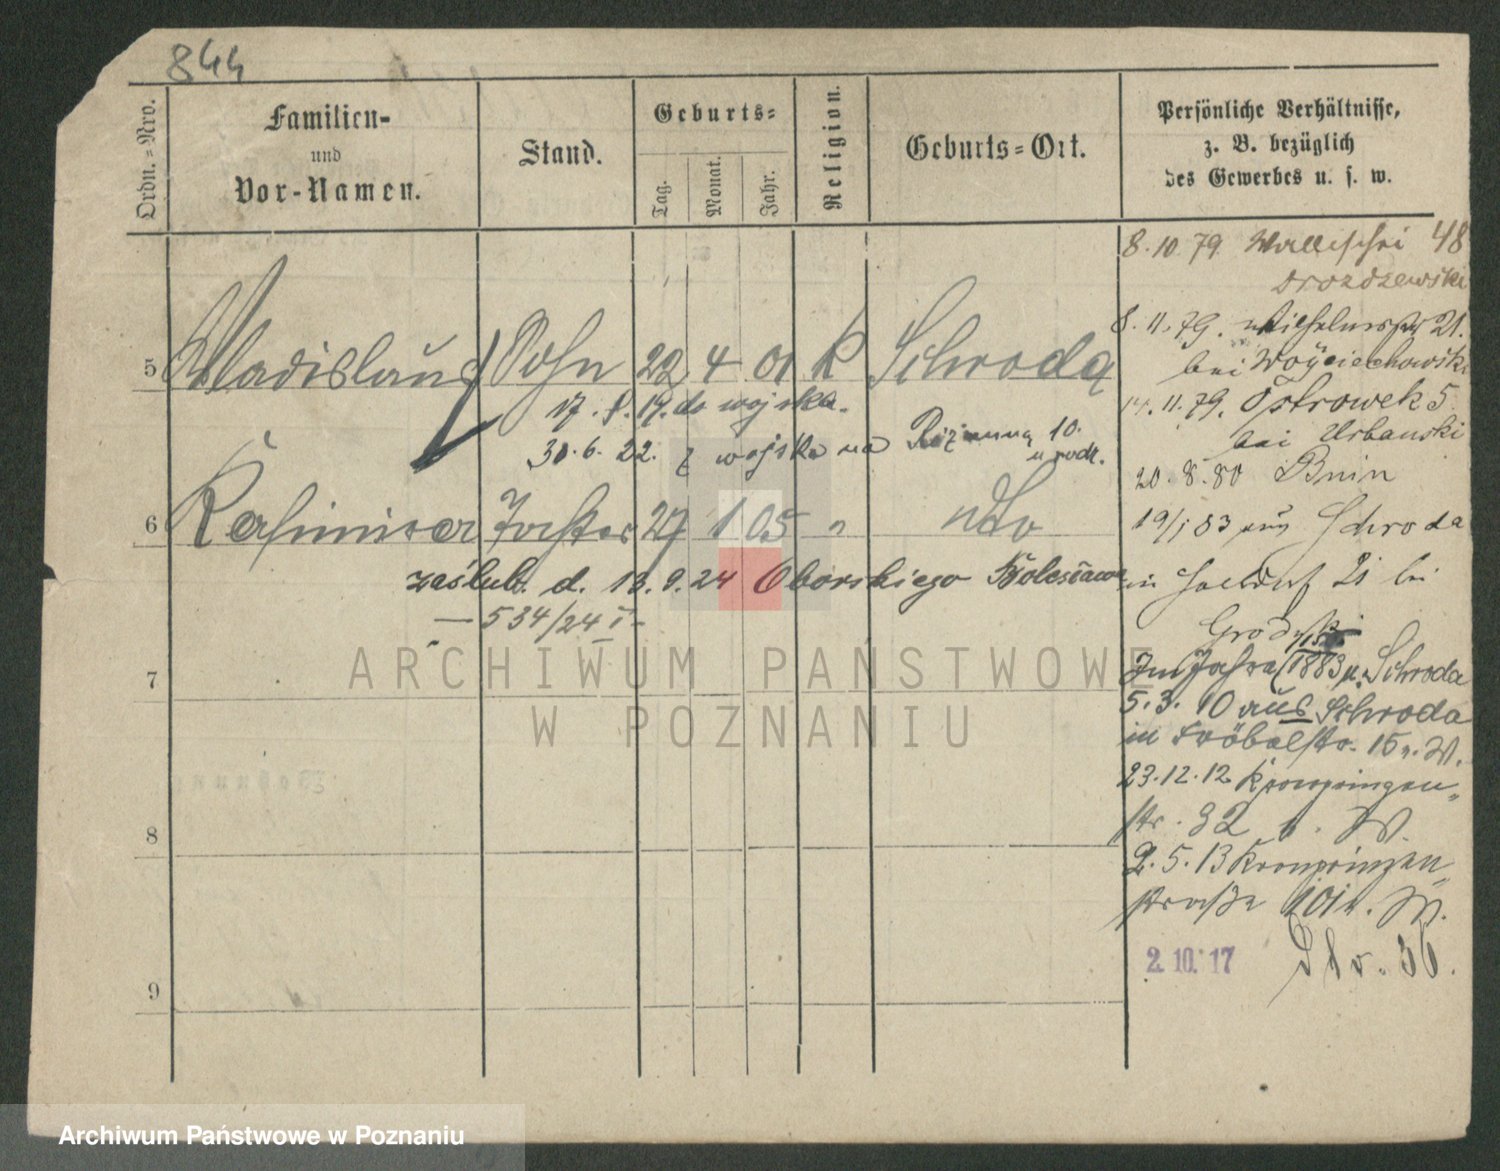 844
Ordn.=Nro.
Familien-
und
Vor-Namen.
Stand.
Geburts=
Tag.
Monat.
Jahr.
Religion.
Geburts=Ort.
Persönliche Verhältnisse,
z. B. bezüglich
des Gewerbes u. s. w.
5 Wladislaus Sohn 22 4 01 K Schroda
17. 8. 19. do wojska.
30. 6. 22. z wojska na 10.
6 Kasimira Tochter 27 1 05 " dto
zaślub. d. 13. 9. 24 Oborskiego Bolesława
— 534/24 I -
7
8
9
8. 10. 79. Wallischei 48
Drozdzewski
8. 11. 79. Wilhelmstr 21.
bei Woyciechowski
14. 11. 79. Ostrowek 5
bei Urbanski
20. 8. 80 Bnin
19/1 83 aus Schroda
in 21 bei
Grodzki
Im Jahre 1883 n. Schroda
5. 3. 10 aus Schroda
in Fröbelstr. 15 n. W.
23. 12. 12 Kronprinzen-
str. 92 b. W.
2. 5. 13 Kronprinzen-
straße 101 b. W.
2. 10. 17 36.
ARCHIWUM PAŃSTWOWE
W POZNANIU
Archiwum Państwowe w Poznaniu